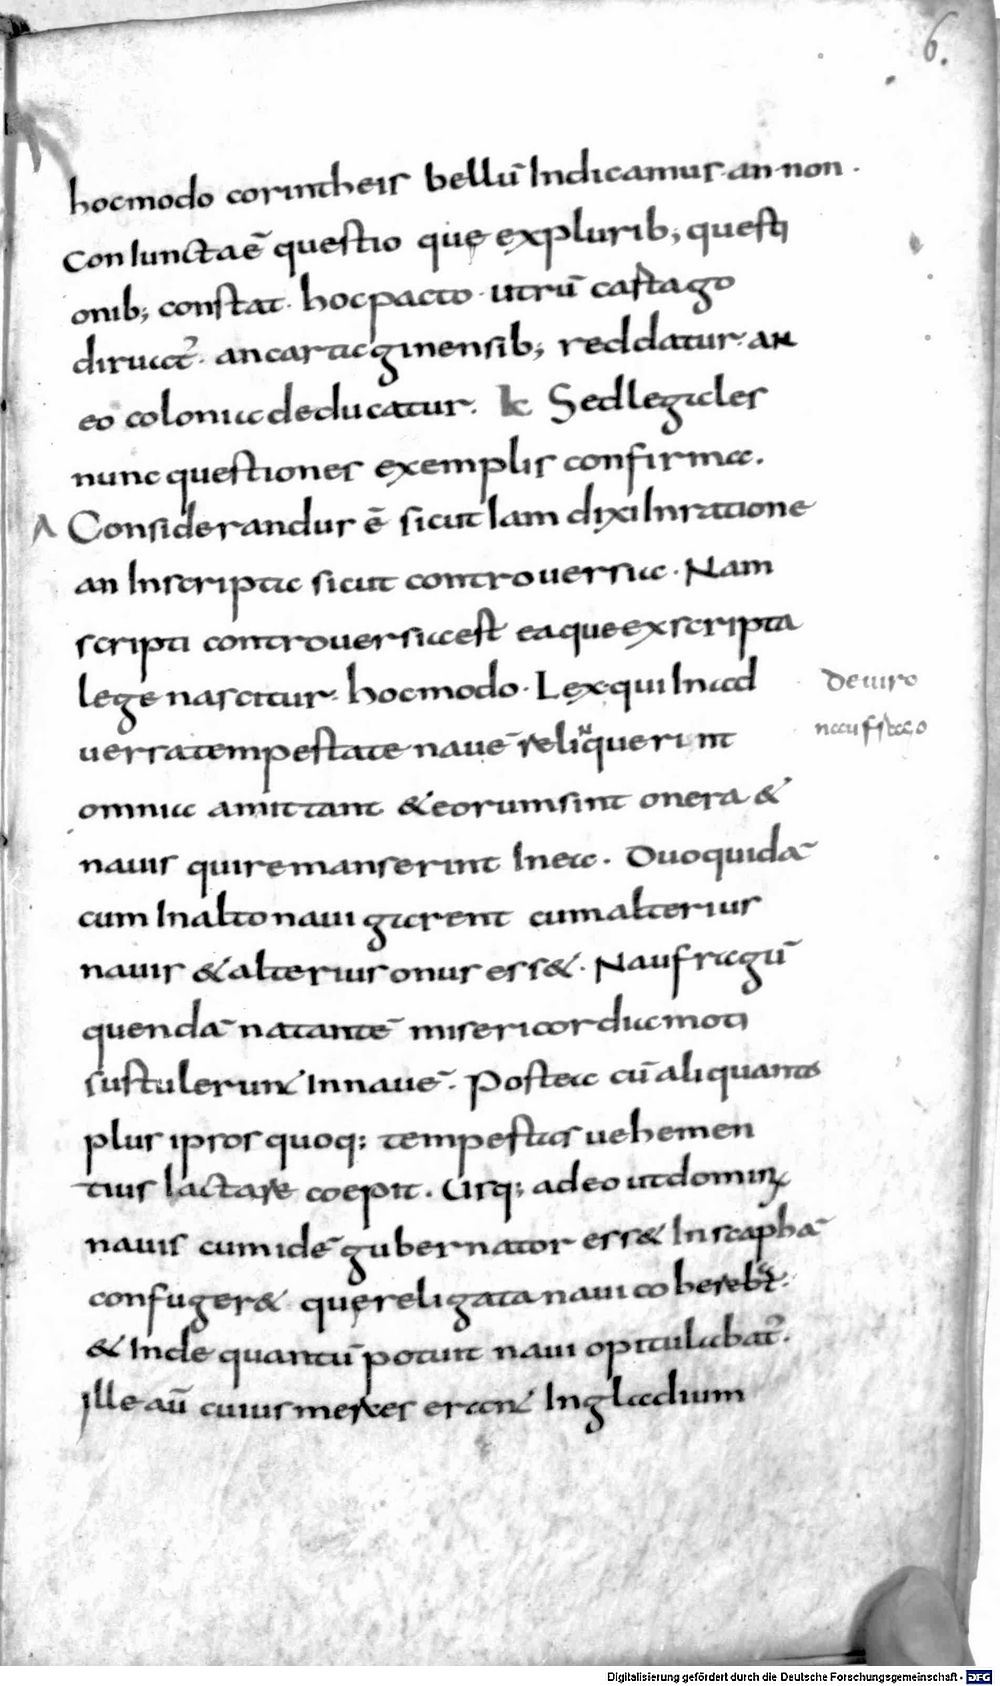 6.
hocmodo corintheis bellū Indicamus an non.
Con Iuncta ē questio que explurib; questi
onib; constat. hocpacto. utrū castago
diruat̉. ancartaginensib; reddatur. an
eo colonia deducatur. K Sed legales
nunc questiones exemplis confirma.
A Considerandus ē sicut Iam dixi Inratione
an Inscripta sicut controuersia. Nam
scripti controuersia est eaqueexscripta
lege nascitur. hocmodo. Lexqui Inad
de uiro
uersa tempestate nauē reliq̉uerint
naufrago
omnia amittant &eorumsint onera &
nauis quiremanserint Inea. Duoquidā
cum Inalto naui garent cumalterius
nauis &alterius onus ess&. Naufragū
quendā natantē misericordia moti
sustulerunt Innauē. Postea cū aliquanto
plus ipsos quoq; tempestas uehemen
tius Iactare coepit. Usq; adeo utdomin
nauis cum idē gubernator ess& Inscaphā
confuger& que religata naui co
& Inde quantū potuit naui opitulabat̉.
Ille aū cuius merces erant Ingladium
Digitalisierung gefördert durch die Deutsche Forschungsgemeinschaft - DFG